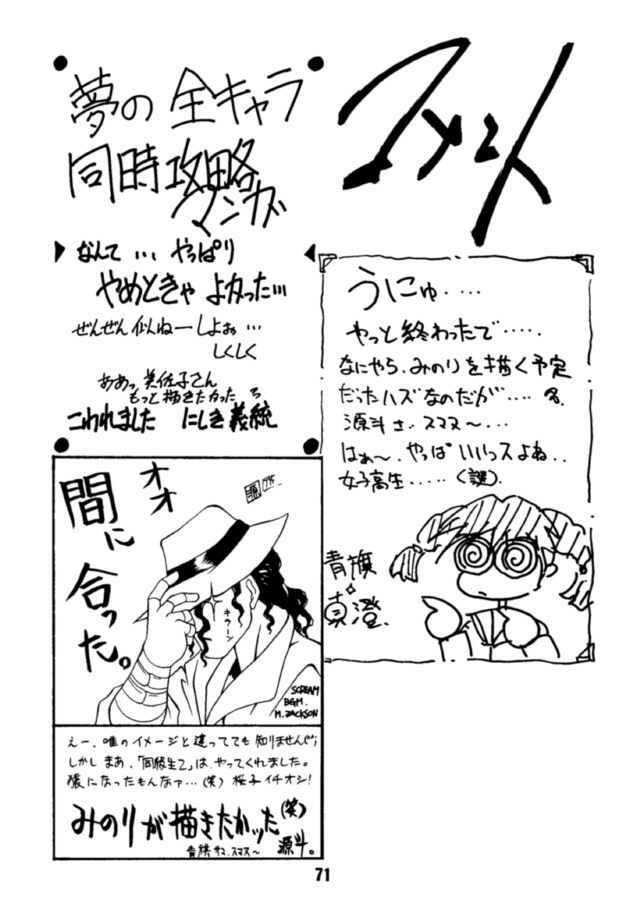 コメント
夢の 全キャラ
同時攻略
マンガ
なんて … やっぱり
やめときゃ よかった…
ぜんぜん 似ねーしよぉ …
しくしく
ああっ 美佐子さん
もっと描きたかった
こわれました にしき義統
うにゅ‥‥
やっと終わったで‥‥‥
なにやら、みのりを描く予定
だったハズなのだが‥‥
源斗さ、スマヌ〜‥‥
はぁ〜、やっぱいいっスよね‥
女子高生‥‥‥(謎)
青旗
真澄
オオ
間に
合った。
キラーン
SCREAM
BGM.
M.JACKSON
えー、唯のイメージと違ってても知りませんぜ;
しかしまあ、「同級生2」は、やってくれました。
猿になったもんなァ…(笑) 桜子イチオシ!
みのりが描きたかッた(笑)
青旗 サマ、スマス〜
源斗。
71